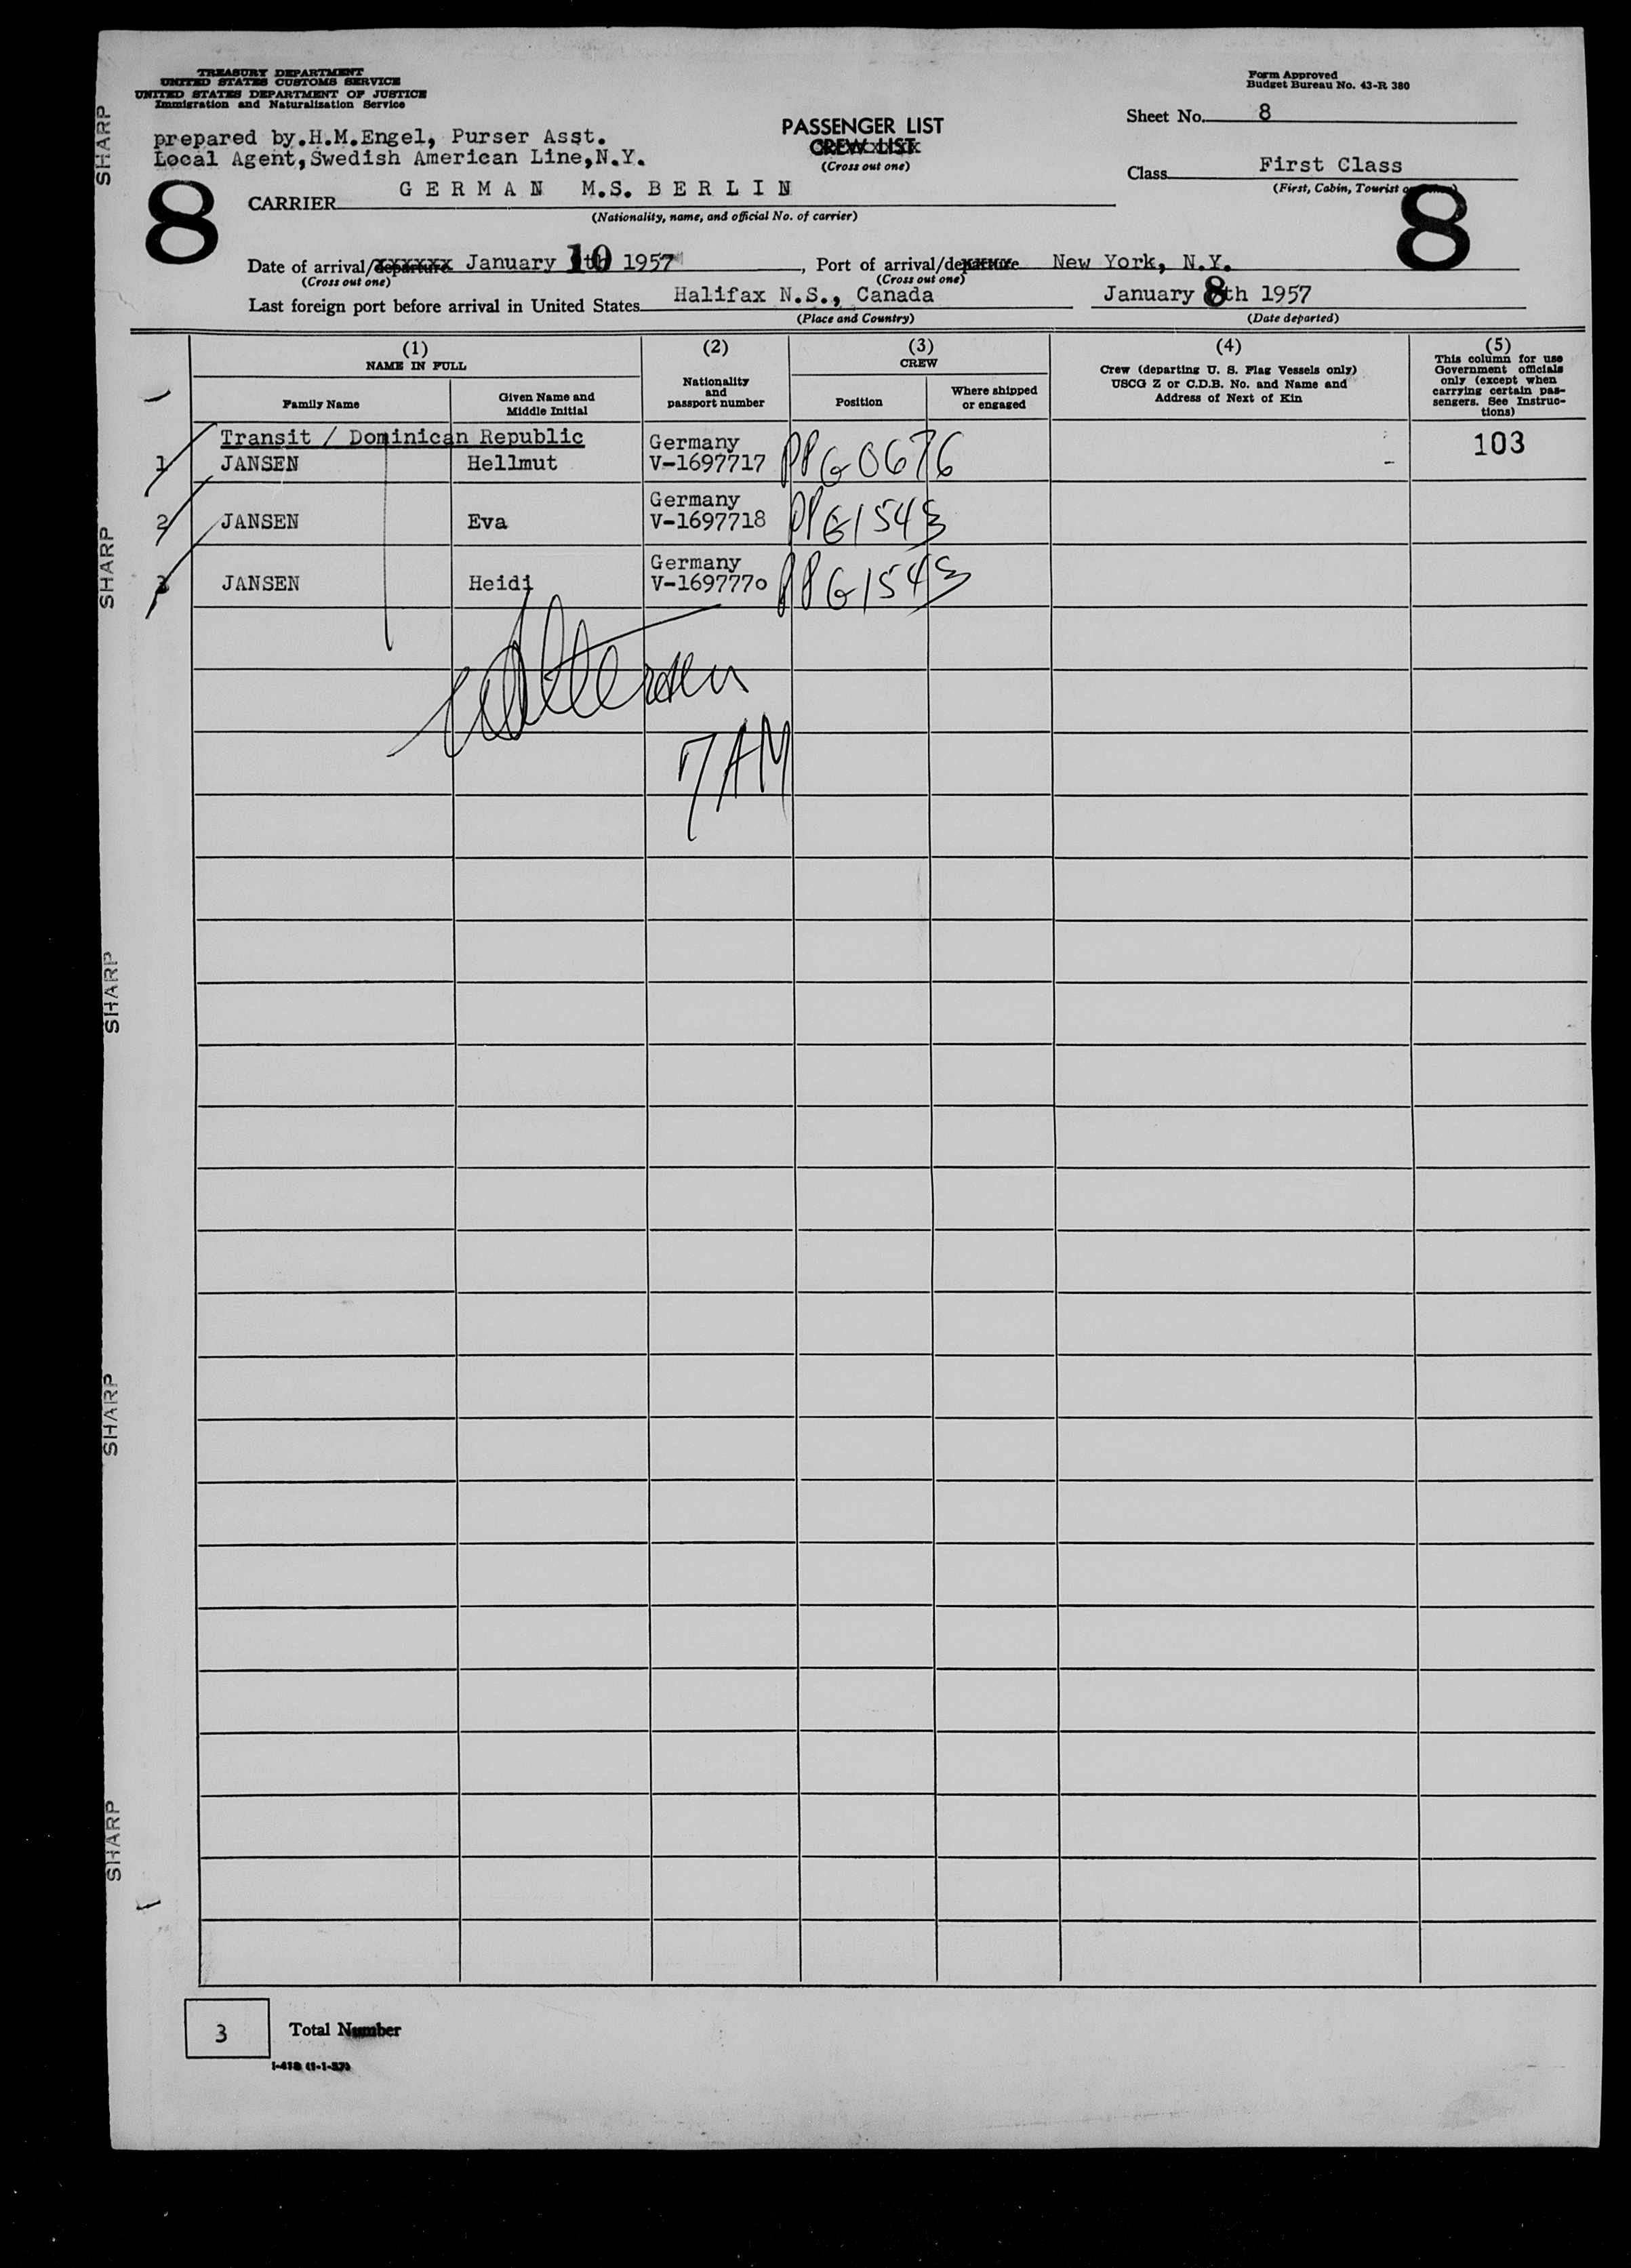 TREASURY DEPARTMENT
UNITED STATES CUSTOMS SERVICE
UNITED STATES DEPARTMENT OF JUSTICE
Immigration and Naturalization Service
Form Approved
Budget Bureau No. 43-R 380
prepared by.H.M.Engel, Purser Asst.
Local Agent,Swedish American Line,N.Y.
PASSENGER LIST
CREW LIST
(Cross out one)
Sheet No. 8
Class First Class
(First, Cabin, Tourist
8
8
CARRIER GERMAN M.S. BERLIN
(Nationality, name, and official No. of carrier)
Date of arrival/departure January 10 1957, Port of arrival/departure New York, N.Y.
(Cross out one) (Cross out one)
Last foreign port before arrival in United States Halifax N.S., Canada January 8th 1957
(Place and Country) (Date departed)
(1) NAME IN FULL
Family Name
Given Name and Middle Initial
(2) Nationality and passport number
(3) CREW
Position
Where shipped or engaged
(4) Crew (departing U. S. Flag Vessels only)
USCG Z or C.D.B. No. and Name and
Address of Next of Kin
(5) This column for use
Government officials
only (except when
carrying certain pas-
sengers. See Instruc-
tions)
Transit / Dominican Republic Germany 103
1 JANSEN Hellmut V-1697717 PPG0676
Germany
2 JANSEN Eva V-1697718 PPG1543
Germany
3 JANSEN Heidi V-1697770 PPG1543
7AM
3 Total Number
I-418 (1-1-57)
SHARP
SHARP
SHARP
SHARP
SHARP